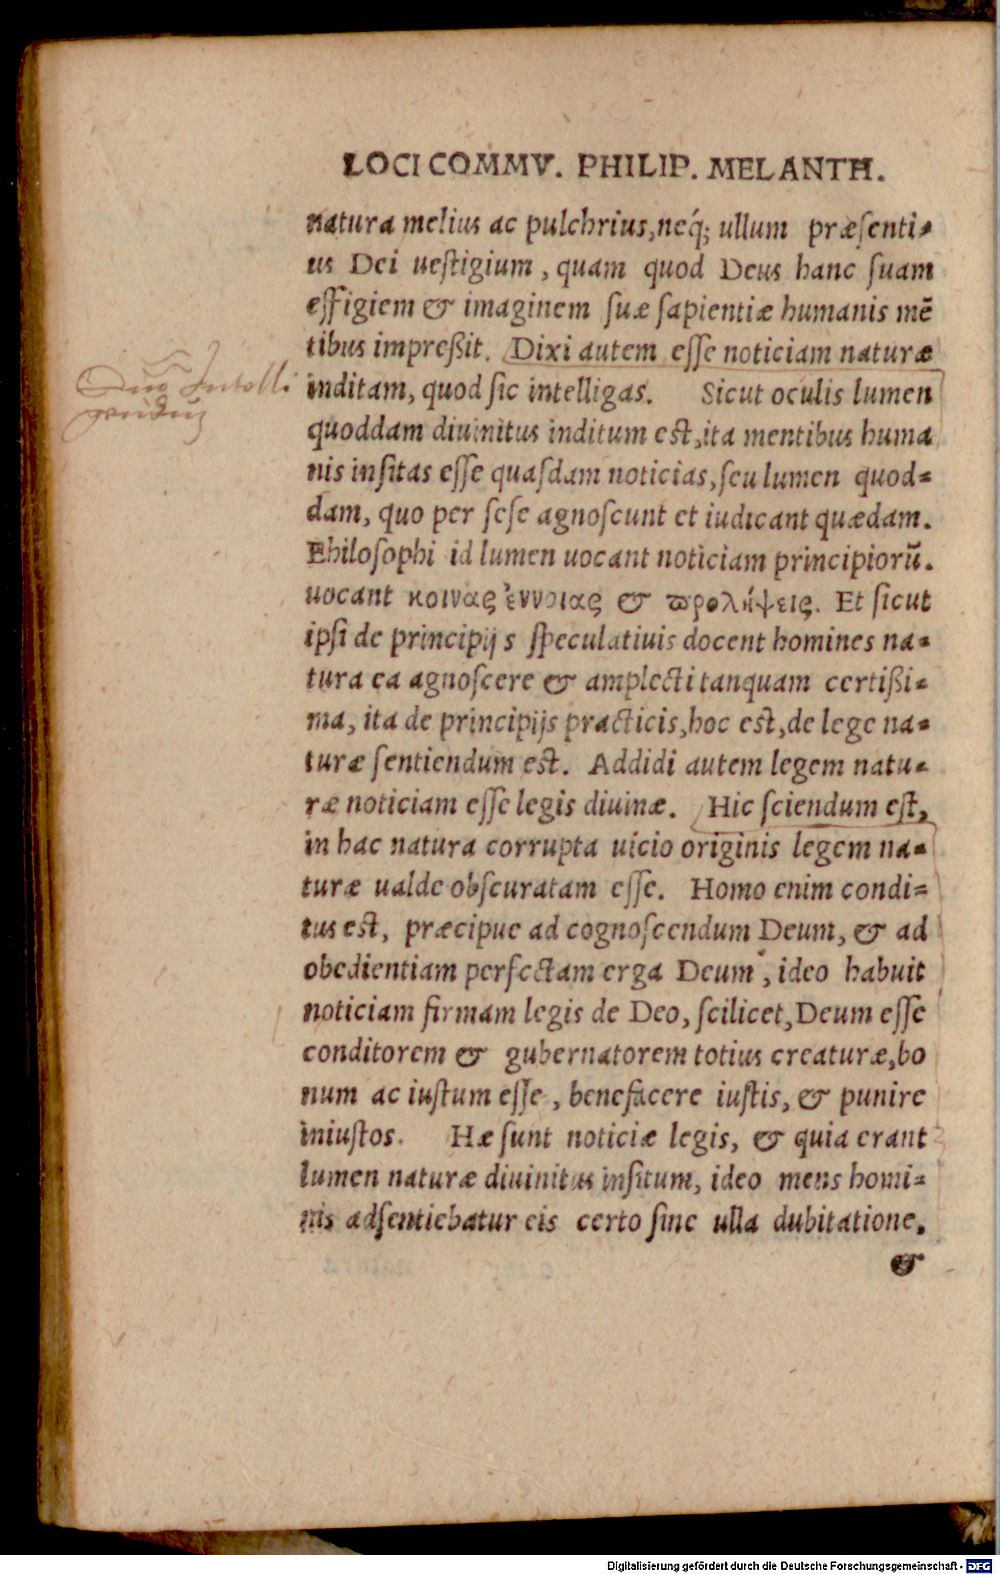 LOCI COMMV. PHILIP. MELANTH.
natura melius ac pulchrius, neq́; ullum præſenti⸗
us Dei ueſtigium, quam quod Deus hanc ſuam
effigiem & imaginem ſuæ ſapientiæ humanis mē
tibus impreßit. Dixi autem eſſe noticiam naturæ
inditam, quod ſic intelligas. Sicut oculis lumen
quoddam diuinitus inditum eſt, ita mentibus huma
nis inſitas eſſe quaſdam noticias, ſeu lumen quod⸗
dam, quo per ſeſe agnoſcunt et iudicant quædam.
Philoſophi id lumen uocant noticiam principiorū.
uocant κοινας ἐννοιας & ϖρολήψεις. Et ſicut
ipſi de principijs ſpeculatiuis docent homines na⸗
tura ea agnoſcere & amplecti tanquam certißi⸗
ma, ita de principijs practicis, hoc eſt, de lege na⸗
turæ ſentiendum eſt. Addidi autem legem natu⸗
ræ noticiam eſſe legis diuinæ. Hic ſciendum eſt,
in hac natura corrupta uicio originis legem na⸗
turæ ualde obſcuratam eſſe. Homo enim condi⸗
tus eſt, præcipue ad cognoſcendum Deum, & ad
obedientiam perfectam erga Deum, ideo habuit
noticiam firmam legis de Deo, ſcilicet, Deum eſſe
conditorem & gubernatorem totius creaturæ, bo
num ac iuſtum eſſe, benefacere iuſtis, & punire
iniuſtos. Hæ ſunt noticiæ legis, & quia erant
lumen naturæ diuinitus inſitum, ideo mens homi⸗
nis adſentiebatur eis certo ſine ulla dubitatione.
&
Digitalisierung gefördert durch die Deutsche Forschungsgemeinschaft - DFG